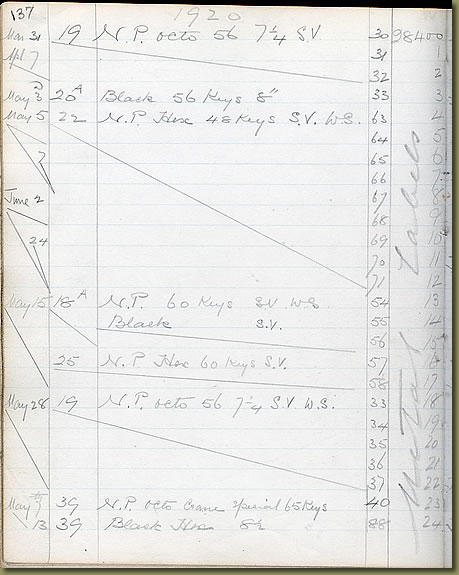 137 1920
Mar 31 19 N.P. octo 56 7¼ S.V 30 98400
Apl 7 31 1
32 2
May 3 20A Black 56 Keys 8" 33 3
May 5 22 N.P. Hex 48 Keys S.V. W.S. 63 4
64 5
7 65 6
66 7
June 2 67 8
68 9
24 69 10
70 11
71 12
May 15 18A N.P. 60 Keys S.V. W.S. 54 13
Black S.V. 55 14
56 15
25 N.P Hex 60 Keys S.V. 57 16
58 17
May 28 19 N.P. octo 56 7¼ S.V. W.S. 33 18
34 19
35 20
36 21
37 22
May 7 39 N.P. octo Crane special 65 Keys 40 23
13 39 Black Hex 8½ 88 24
Metal Labels